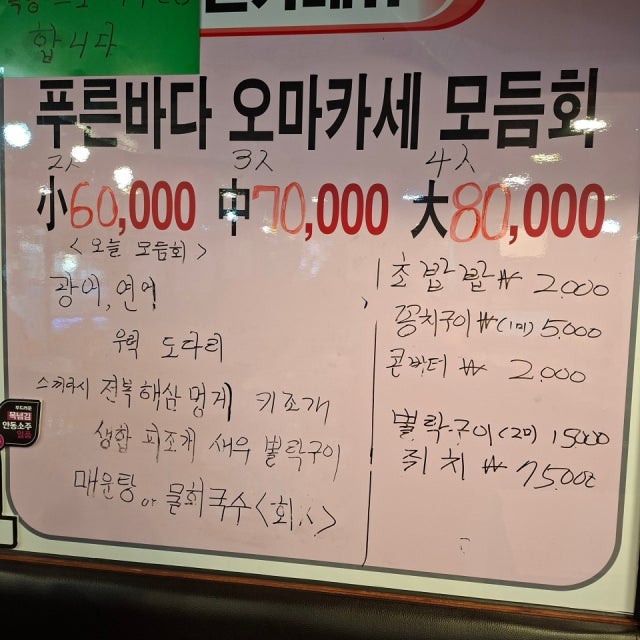 합니다
푸른바다 오마카세 모듬회
2人 3人 4人
小60,000 中70,000 大80,000
<오늘 모듬회>
광어, 연어
우럭 도다리
스끼다시 전복 해삼 멍게 키조개
생합 피조개 새우 뽈락구이
매운탕 or 물회국수<회.>
초밥밥 ₩ 2.000
꽁치구이 ₩(1미) 5.000
콘버터 ₩ 2.000
뽈락구이(2미) 15000
쥐치 ₩ 75.000
목넘김
안동소주
일품